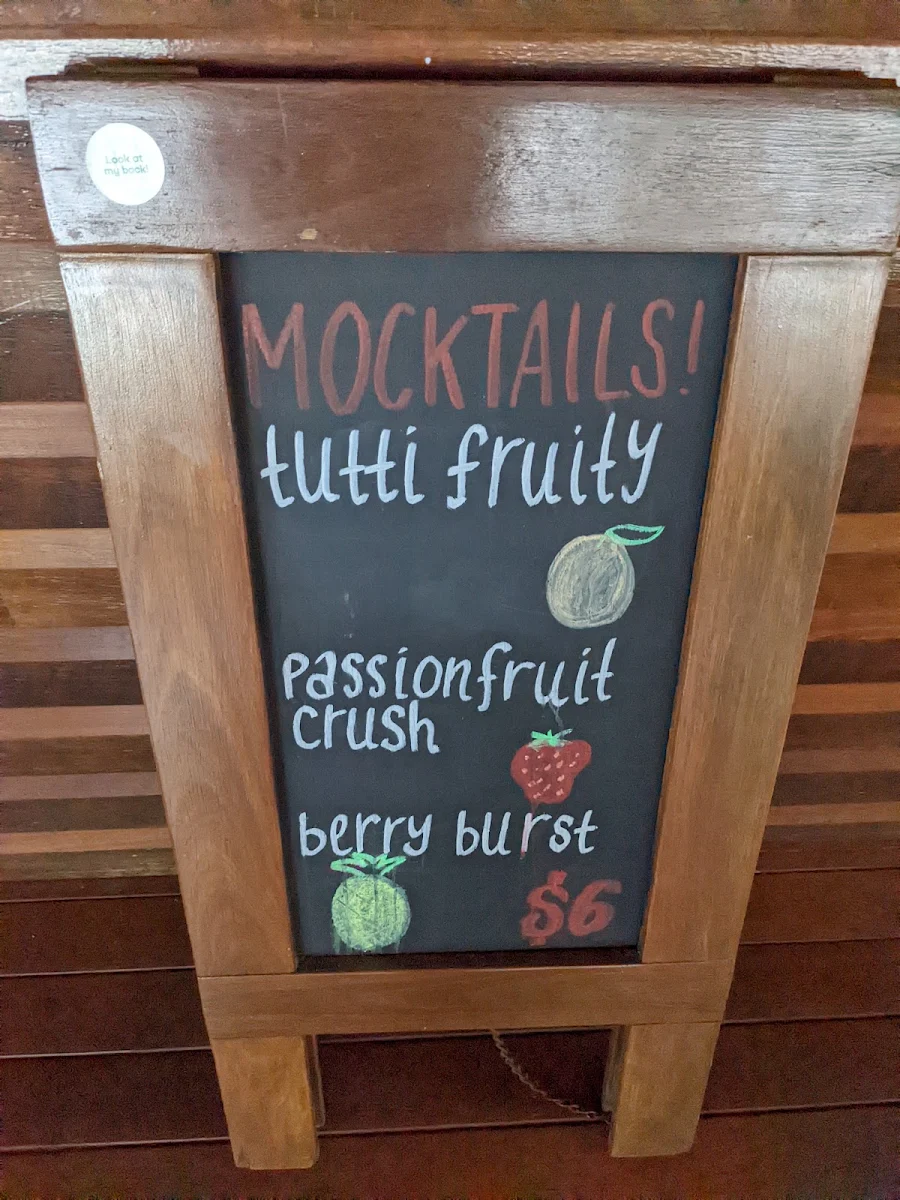 Look at
my book!
MOCKTAILS!
tutti fruity
passionfruit
crush
berry burst
$6